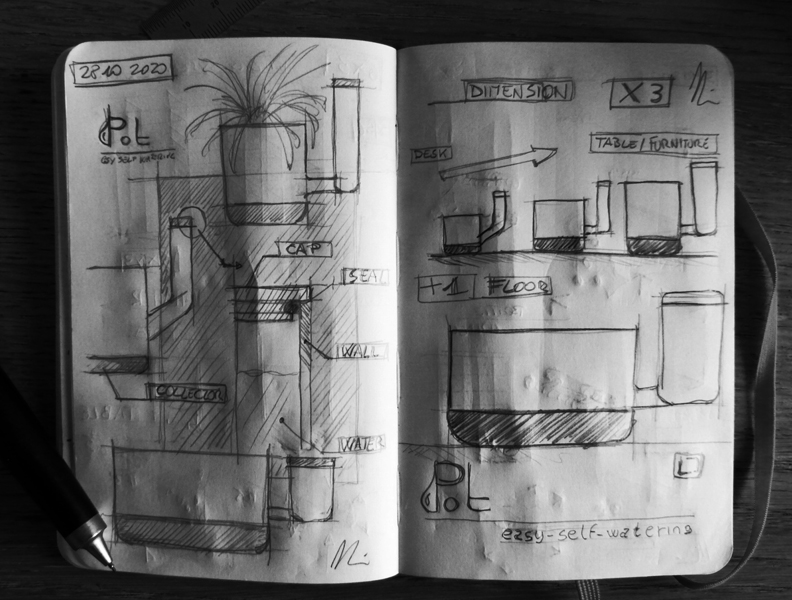 28 10 2020
P.t
CAP
SEAL
WALL
COLLECTOR
WATER
DIMENSION
X3
DESK
TABLE/FURNITURE
+1 FLOOR
P.t
easy-self-watering